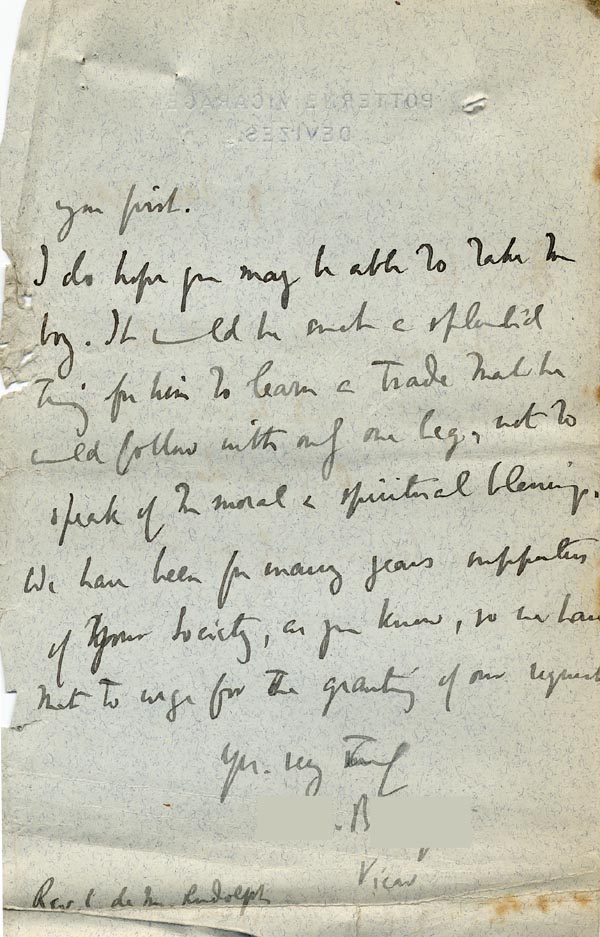 POTTERNE VICARAGE
DEVIZES.
you first.
I do hope you may be able to take the
boy. It would be such a splendid
thing for him to learn a trade that he
could follow with only one leg, not to
speak of the moral & spiritual blessings.
We have been for many years supporters
of your Society, as you know, so we have
that to urge for the granting of our request
Yrs. very truly
B
Vicar
Rev. E. de M. Rudolph